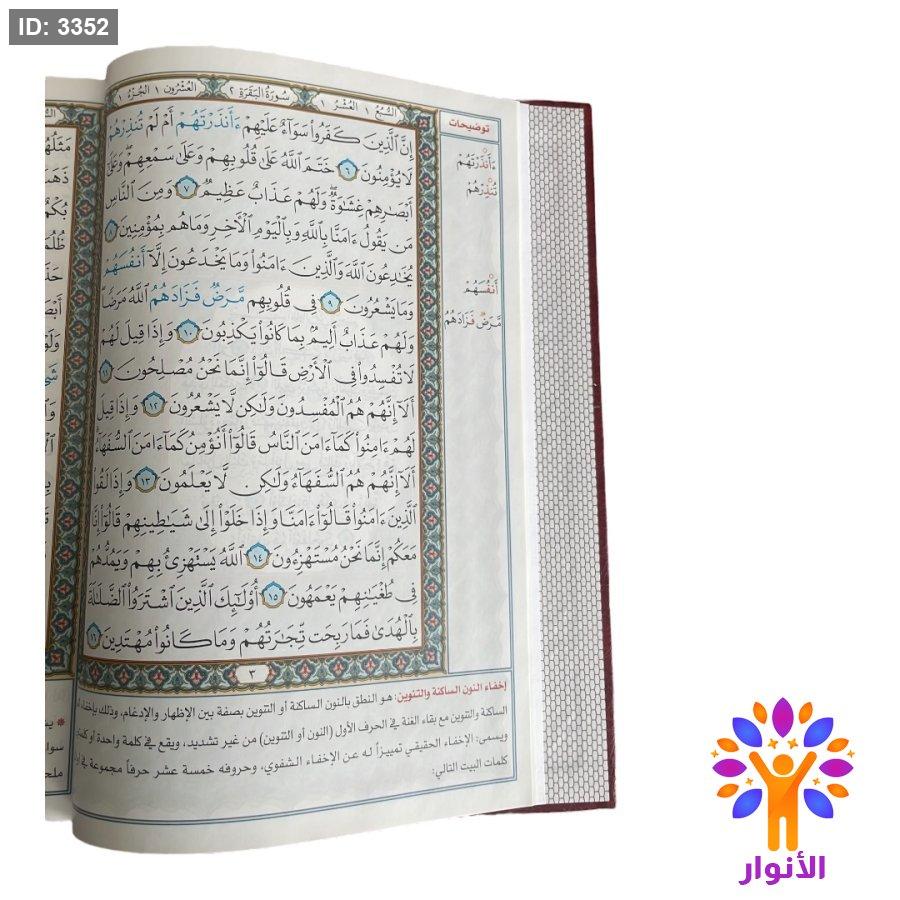 ID: 3352
السُّبُعُ ١ العُشْرُ ١ سُورَةُ البَقَرَةِ ٢ العُشْرُونَ ١ الجُزْءُ ١
إِنَّ ٱلَّذِينَ كَفَرُوا۟ سَوَآءٌ عَلَيْهِمْ ءَأَنذَرْتَهُمْ أَمْ لَمْ تُنذِرْهُمْ
لَا يُؤْمِنُونَ ٦ خَتَمَ ٱللَّهُ عَلَىٰ قُلُوبِهِمْ وَعَلَىٰ سَمْعِهِمْ ۖ وَعَلَىٰٓ
أَبْصَـٰرِهِمْ غِشَـٰوَةٌ ۖ وَلَهُمْ عَذَابٌ عَظِيمٌ ٧ وَمِنَ ٱلنَّاسِ
مَن يَقُولُ ءَامَنَّا بِٱللَّهِ وَبِٱلْيَوْمِ ٱلْـَٔاخِرِ وَمَا هُم بِمُؤْمِنِينَ ٨
يُخَـٰدِعُونَ ٱللَّهَ وَٱلَّذِينَ ءَامَنُوا۟ وَمَا يَخْدَعُونَ إِلَّآ أَنفُسَهُمْ
وَمَا يَشْعُرُونَ ٩ فِى قُلُوبِهِم مَّرَضٌ فَزَادَهُمُ ٱللَّهُ مَرَضًا ۖ
وَلَهُمْ عَذَابٌ أَلِيمٌۢ بِمَا كَانُوا۟ يَكْذِبُونَ ١٠ وَإِذَا قِيلَ لَهُمْ
لَا تُفْسِدُوا۟ فِى ٱلْأَرْضِ قَالُوٓا۟ إِنَّمَا نَحْنُ مُصْلِحُونَ ١١
أَلَآ إِنَّهُمْ هُمُ ٱلْمُفْسِدُونَ وَلَـٰكِن لَّا يَشْعُرُونَ ١٢ وَإِذَا قِيلَ
لَهُمْ ءَامِنُوا۟ كَمَآ ءَامَنَ ٱلنَّاسُ قَالُوٓا۟ أَنُؤْمِنُ كَمَآ ءَامَنَ ٱلسُّفَهَآءُ ۗ
أَلَآ إِنَّهُمْ هُمُ ٱلسُّفَهَآءُ وَلَـٰكِن لَّا يَعْلَمُونَ ١٣ وَإِذَا لَقُوا۟
ٱلَّذِينَ ءَامَنُوا۟ قَالُوٓا۟ ءَامَنَّا وَإِذَا خَلَوْا۟ إِلَىٰ شَيَـٰطِينِهِمْ قَالُوٓا۟ إِنَّا
مَعَكُمْ إِنَّمَا نَحْنُ مُسْتَهْزِءُونَ ١٤ ٱللَّهُ يَسْتَهْزِئُ بِهِمْ وَيَمُدُّهُمْ
فِى طُغْيَـٰنِهِمْ يَعْمَهُونَ ١٥ أُو۟لَـٰٓئِكَ ٱلَّذِينَ ٱشْتَرَوُا۟ ٱلضَّلَـٰلَةَ
بِٱلْهُدَىٰ فَمَا رَبِحَت تِّجَـٰرَتُهُمْ وَمَا كَانُوا۟ مُهْتَدِينَ ١٦
٣
توضيحات
ءَأَنذَرْتَهُمْ
تُنذِرْهُمْ
أَنفُسَهُمْ
مَّرَضٌ فَزَادَهُمُ
إخفاء النون الساكنة والتنوين: هـو النطق بالنون الساكنة أو التنوين بصفة بين الإظهار والإدغام، وذلك بإخفاء
الساكنة والتنوين مع بقاء الغنة في الحرف الأول (النون أو التنوين) من غير تشديد، ويقع في كلمة واحدة أو
ويسمى: الإخفاء الحقيقي تمييزاً له عن الإخفاء الشفوي، وحروفه خمسة عشر حرفاً مجموعة في
كلمات البيت التالي:
الأنوار